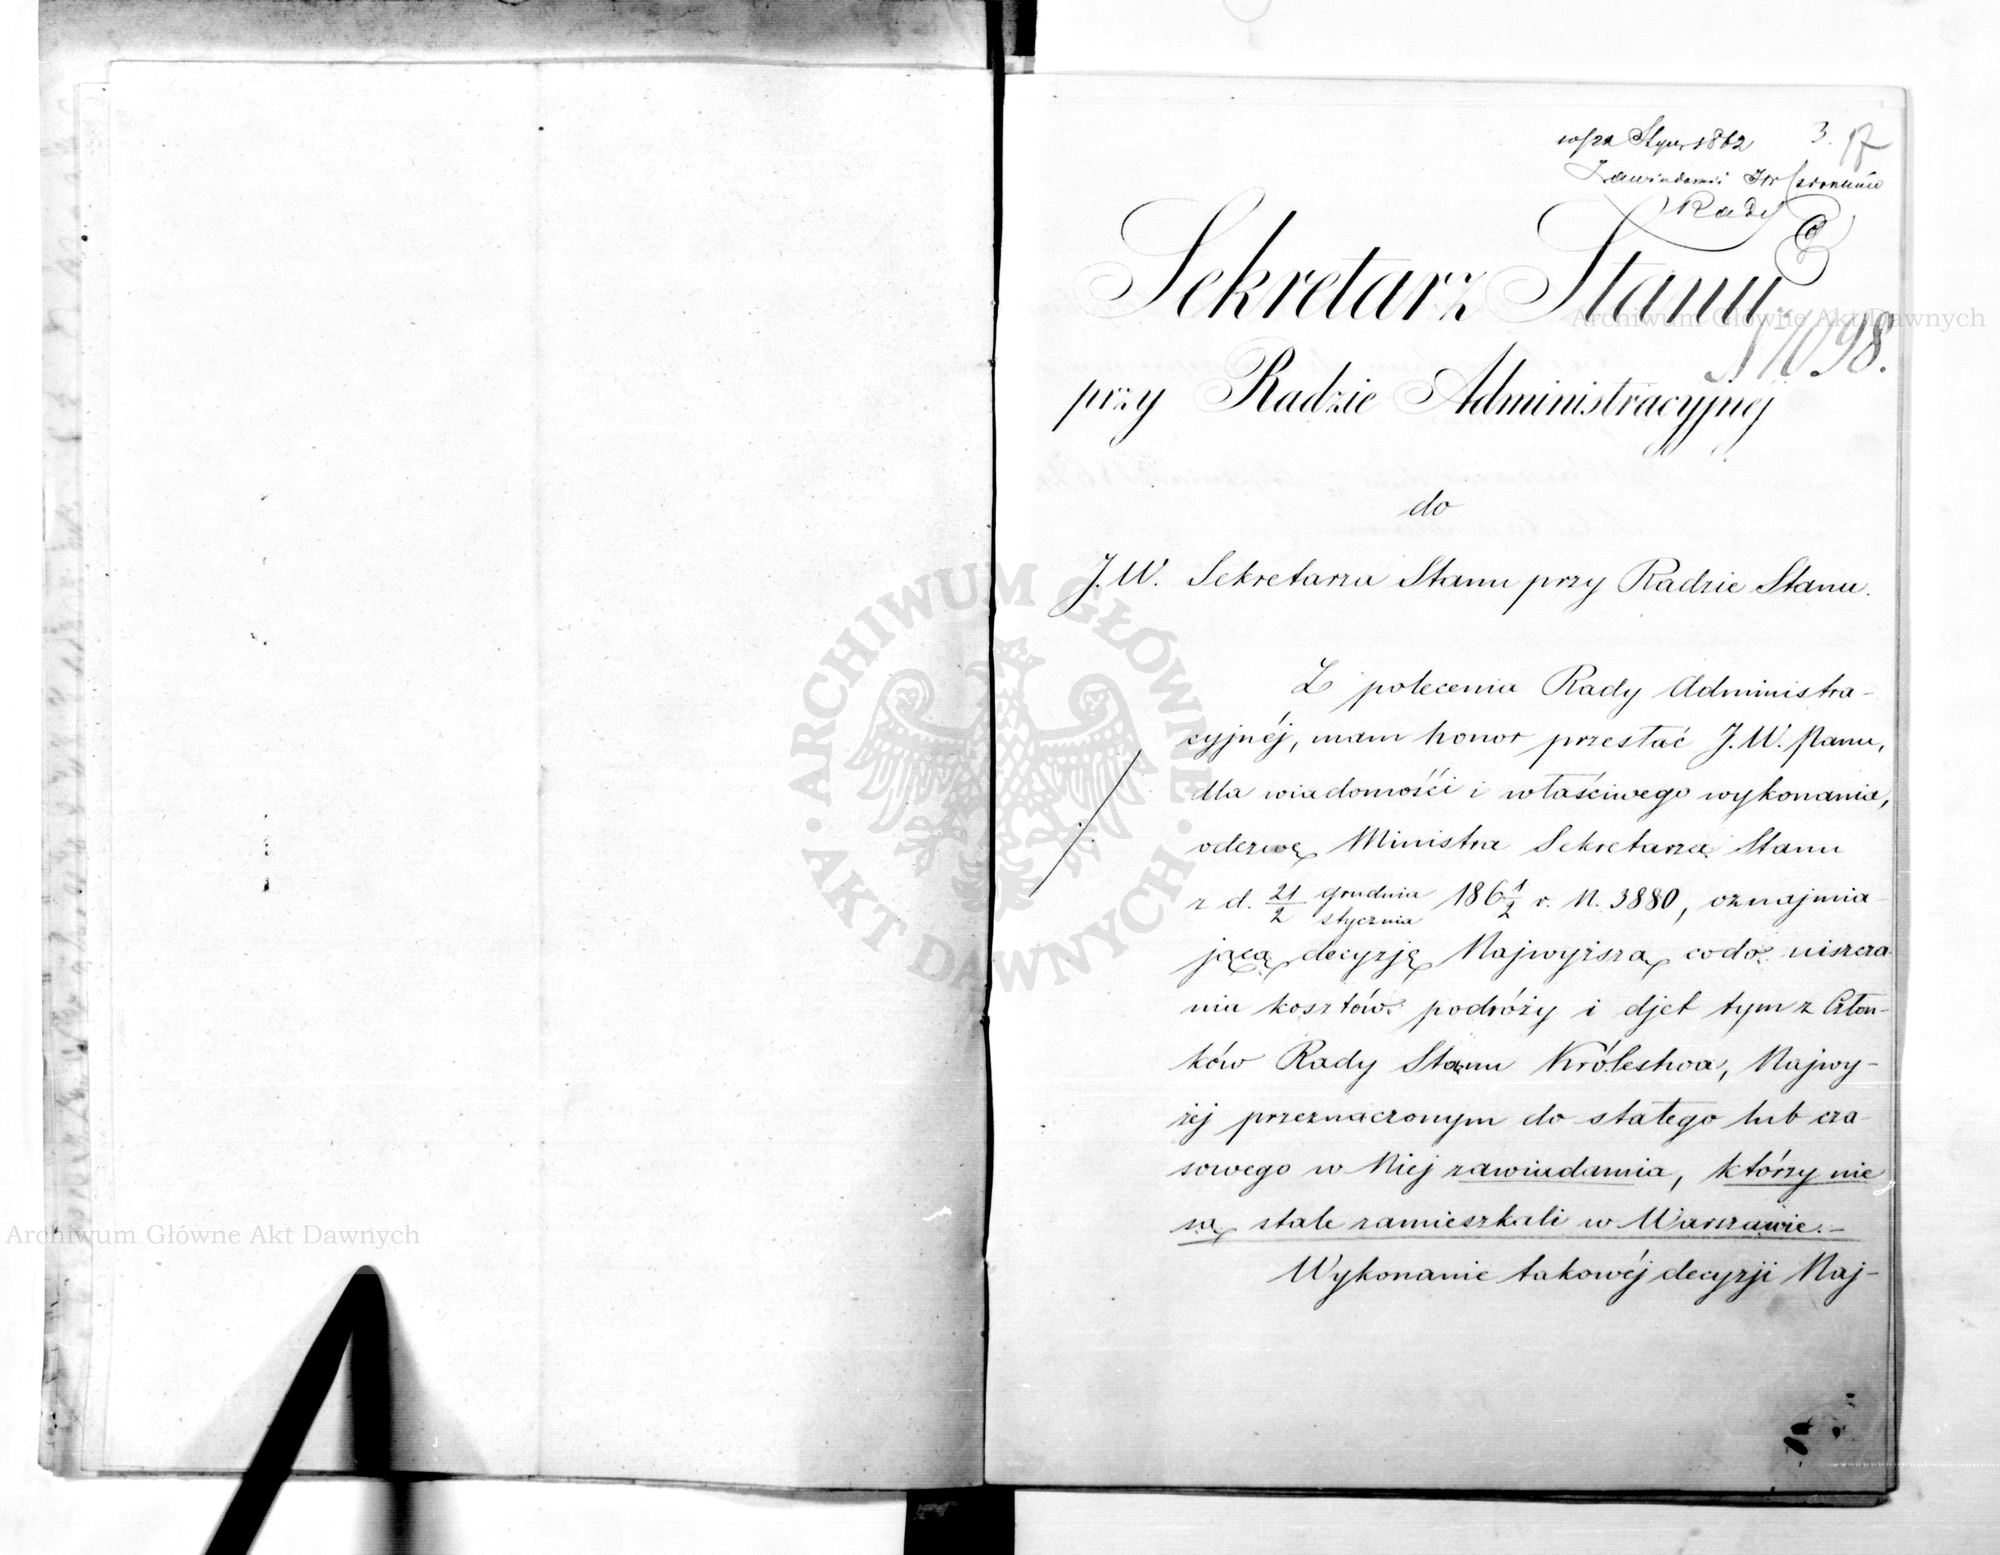 Stycz. 1862 3.
Zawiadomić
Rady
Sekretarz Stanu
N 1098.
przy Radzie Administracyjnej
do
J.W. Sekretarza Stanu przy Radzie Stanu.
Z polecenia Rady Administra-
cyjnéj, mam honor przesłać J.W. Panu,
dla wiadomośći i właściwego wykonania,
odezwę Ministra Sekretarza Stanu
z d. 21/2 grudnia/stycznia 186 1/2 r. N. 3880, oznajmia
jącą decyzję Najwyższą, codo uiszcza
nia kosztów podróży i djet tym z Człon-
ków Rady Stanu Królestwa, Najwy-
żéj przeznaczonym do stałego lub cza-
sowego w Niéj zawiadamia, którzy nie
są stale zamieszkali w Warszawie.-
Wykonanie takowéj decyzji Naj-
Archiwum Główne Akt Dawnych
Archiwum Główne Akt Dawnych
ARCHIWUM GŁÓWNE · AKT DAWNYCH ·